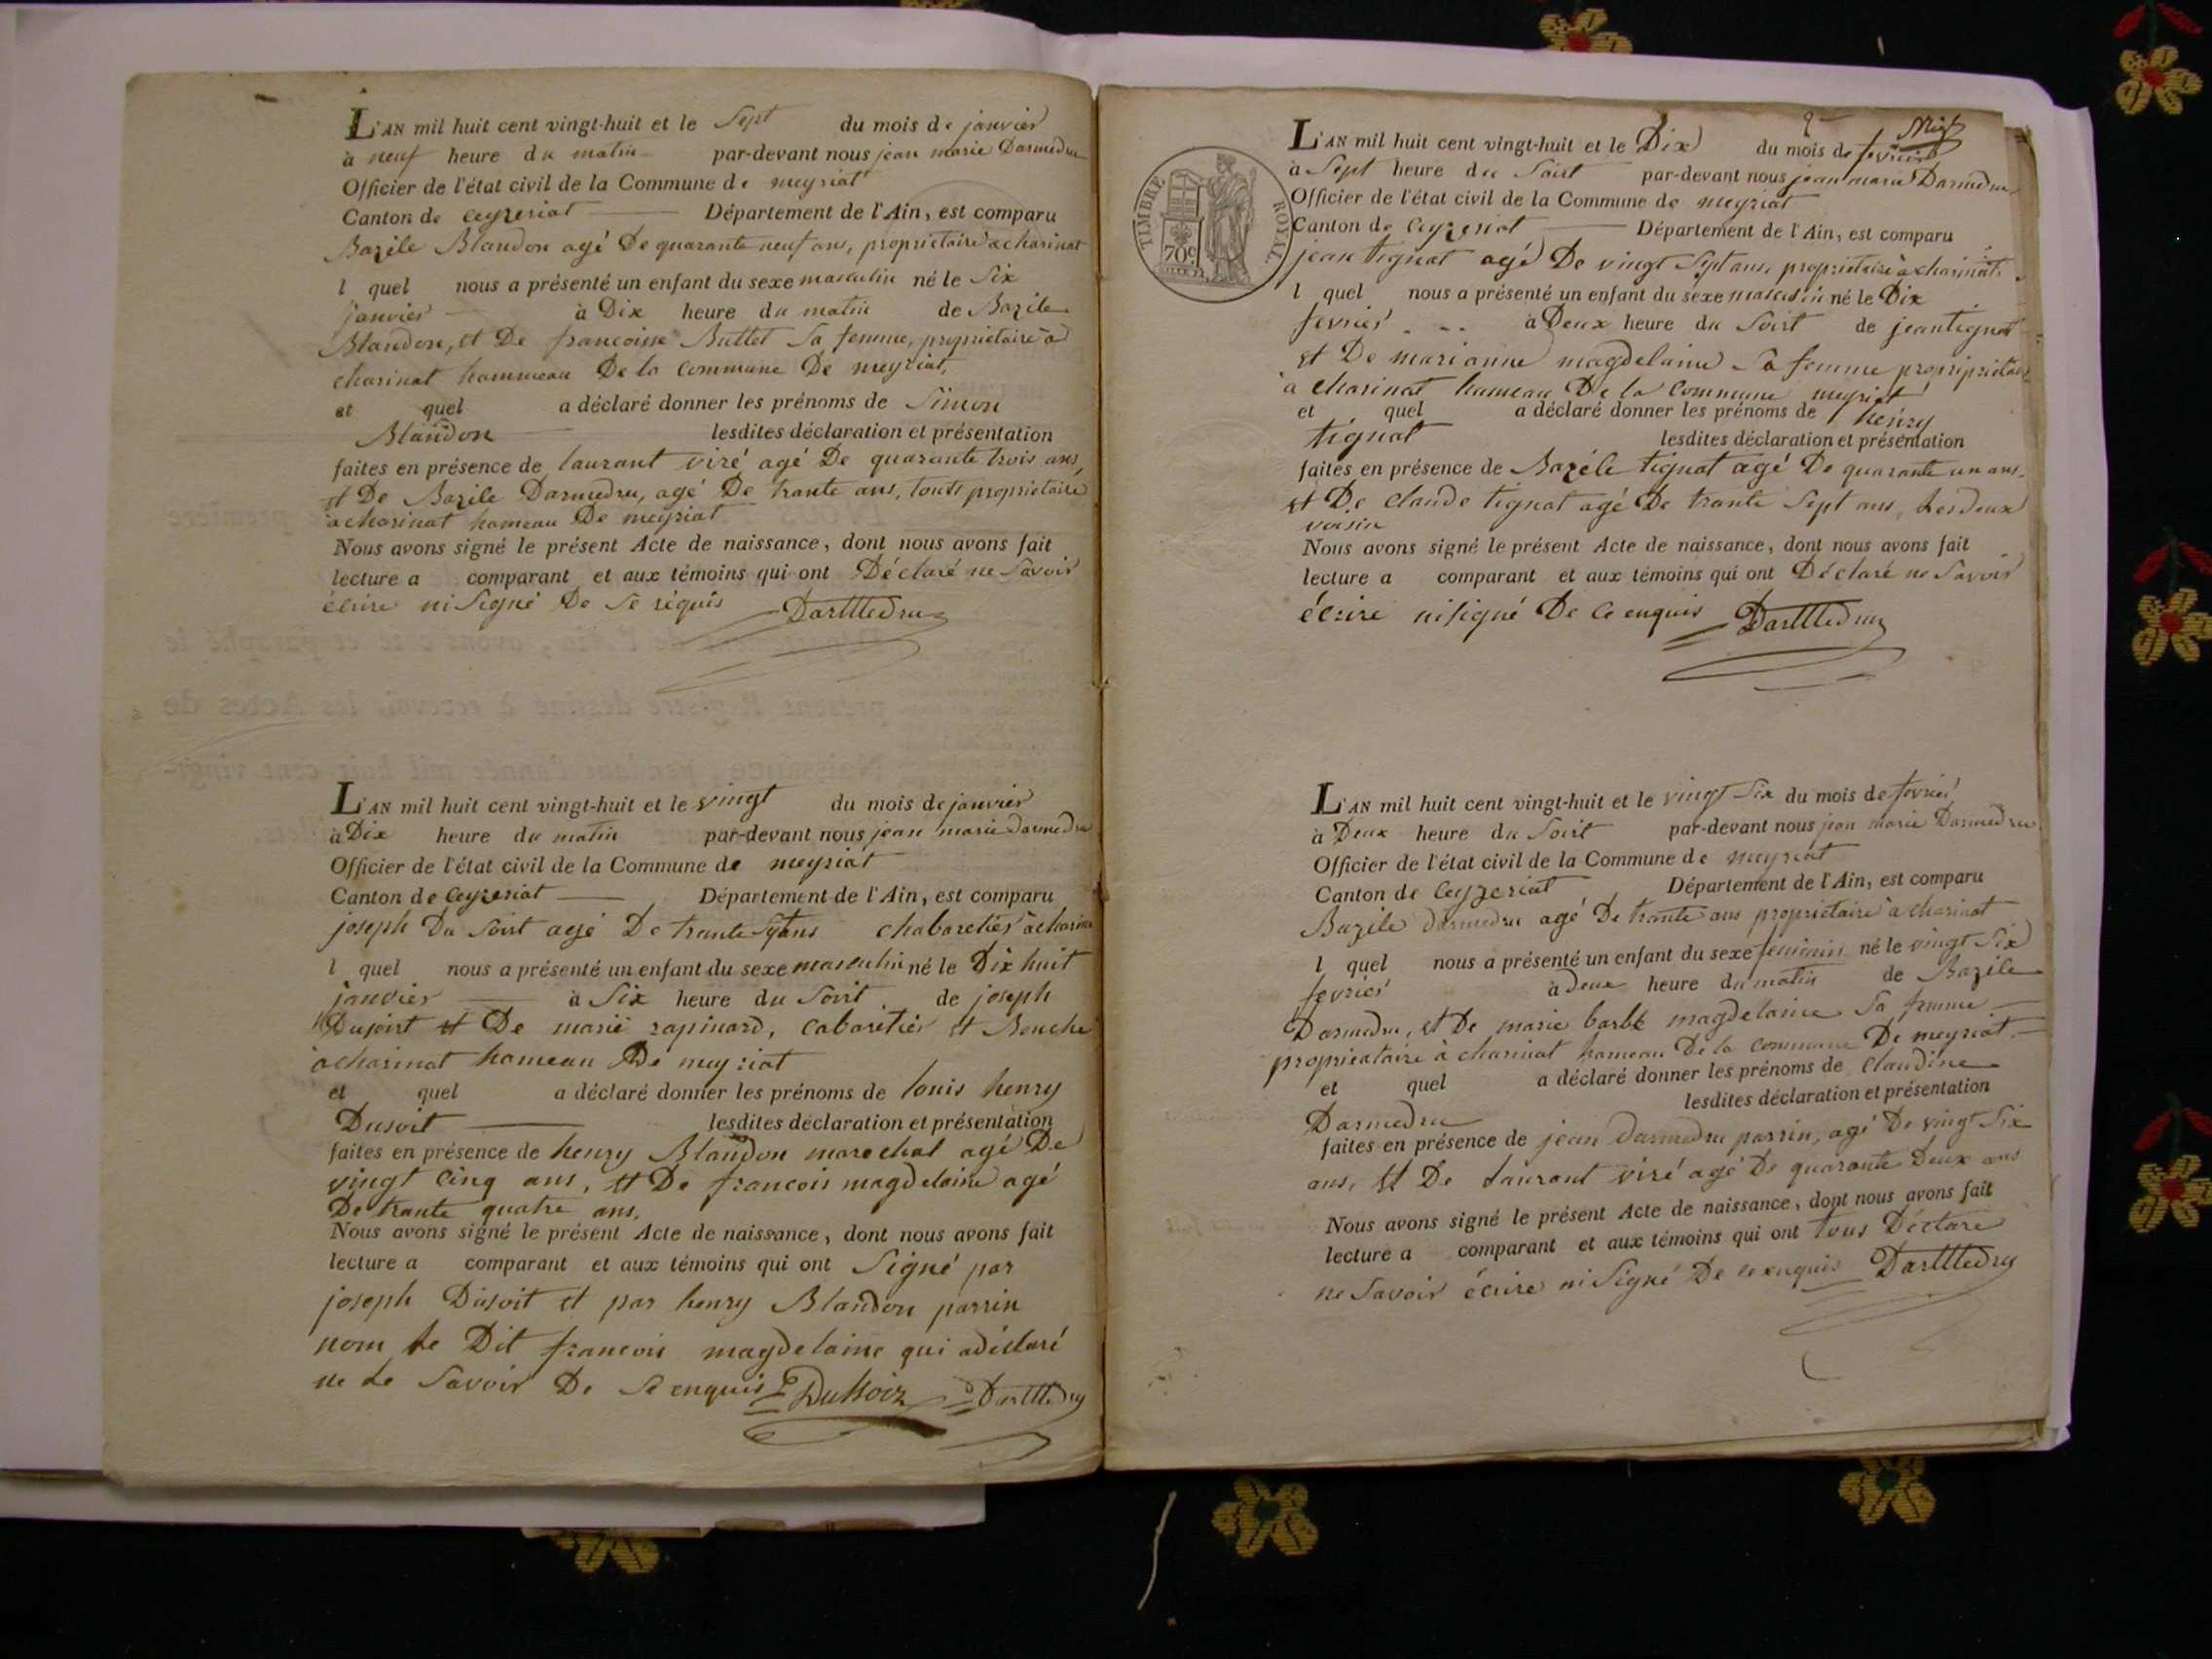 L'AN mil huit cent vingt-huit et le Sept du mois de janvier
à neuf heure du matin par-devant nous jean marie Darmedru
Officier de l'état civil de la Commune de meyriat
Canton de ceyzeriat Département de l'Ain, est comparu
Bazile Blandon agé De quarante neuf ans, proprietaire a charinat
l quel nous a présenté un enfant du sexe masculin né le Six
janvier à Dix heure du matin de Bazile
Blandon, et De francoise Buttet Sa femme, proprietaire à
charinat hammeau De la commune De meyriat,
et quel a déclaré donner les prénoms de Simon
Blandon lesdites déclaration et présentation
faites en présence de laurant viré agé De quarante trois ans,
et De Bazile Darmedru, agé De trante ans, touts proprietaire
a charinat hameau De meyriat
Nous avons signé le présent Acte de naissance, dont nous avons fait
lecture a comparant et aux témoins qui ont Déclaré ne Savoir
écrire ni Signé De Se réquis Darmedru
L'AN mil huit cent vingt-huit et le vingt du mois de janvier
à Dix heure du matin par-devant nous jean marie darmedru
Officier de l'état civil de la Commune de meyriat
Canton de Ceyzeriat Département de l'Ain, est comparu
joseph Du Soit agé De trante ans chabaretier à charinat
l quel nous a présenté un enfant du sexe masculin né le Dix huit
janvier à Six heure du Soirt de joseph
Dusoirt et De marie rapinard, cabaretier et Bouche
à charinat hameau De meyriat
et quel a déclaré donner les prénoms de louis henry
Dusoit lesdites déclaration et présentation
faites en présence de henry Blandon marechal agé De
vingt cinq ans, et De francois magdelaine agé
De trante quatre ans.
Nous avons signé le présent Acte de naissance, dont nous avons fait
lecture a comparant et aux témoins qui ont Signé par
joseph Dusoit et par henry Blandon parrin
nom le Dit francois magdelaine qui a déclaré
ne le Savoir De Se enquis Darmedru
2
L'AN mil huit cent vingt-huit et le Dix du mois de fevrier
à Sept heure du Soirt par-devant nous jean marie Darmedru
Officier de l'état civil de la Commune de meyriat
Canton de Ceyzeriat Département de l'Ain, est comparu
TIMBRE ROYAL 70c
jean tignat agé De vingt Sept ans, proprietaire à charinat
l quel nous a présenté un enfant du sexe masculin né le Dix
fevrier à Deux heure du Soirt de jean tignat
et De marianne magdelaine Sa femme propriprietaire
à charinat hameau De la Commune meyriat
et quel a déclaré donner les prénoms de henry
tignat lesdites déclaration et présentation
faites en présence de Bazile tignat agé De quarante un ans.
et De claude tignat agé De trante Sept ans, les deux
voisin
Nous avons signé le présent Acte de naissance, dont nous avons fait
lecture a comparant et aux témoins qui ont Déclaré ne Savoir
écrire ni signé De Ce enquis Darmedru
L'AN mil huit cent vingt-huit et le vingt Six du mois de fevrier
à Deux heure du Soirt par-devant nous jean marie Darmedru
Officier de l'état civil de la Commune de meyriat
Canton de Ceyzeriat Département de l'Ain, est comparu
Bazile darmedru agé De trante ans proprietaire à charinat
l quel nous a présenté un enfant du sexe feminin né le vingt Six
fevrier à deux heure du matin de Bazile
Darmedru, et De marie barbe magdelaine Sa femme
proprieataire à charinat hameau De la commune De meyriat.
et quel a déclaré donner les prénoms de Claudine
Darmedru lesdites déclaration et présentation
faites en présence de jean darmedru parrin, agé De vingt Six
ans, et De Laurant viré agé De quarante Deux ans
Nous avons signé le présent Acte de naissance, dont nous avons fait
lecture a comparant et aux témoins qui ont tous Déclaré
ne Savoir écrire ni Signé De ce enquis Darmedru